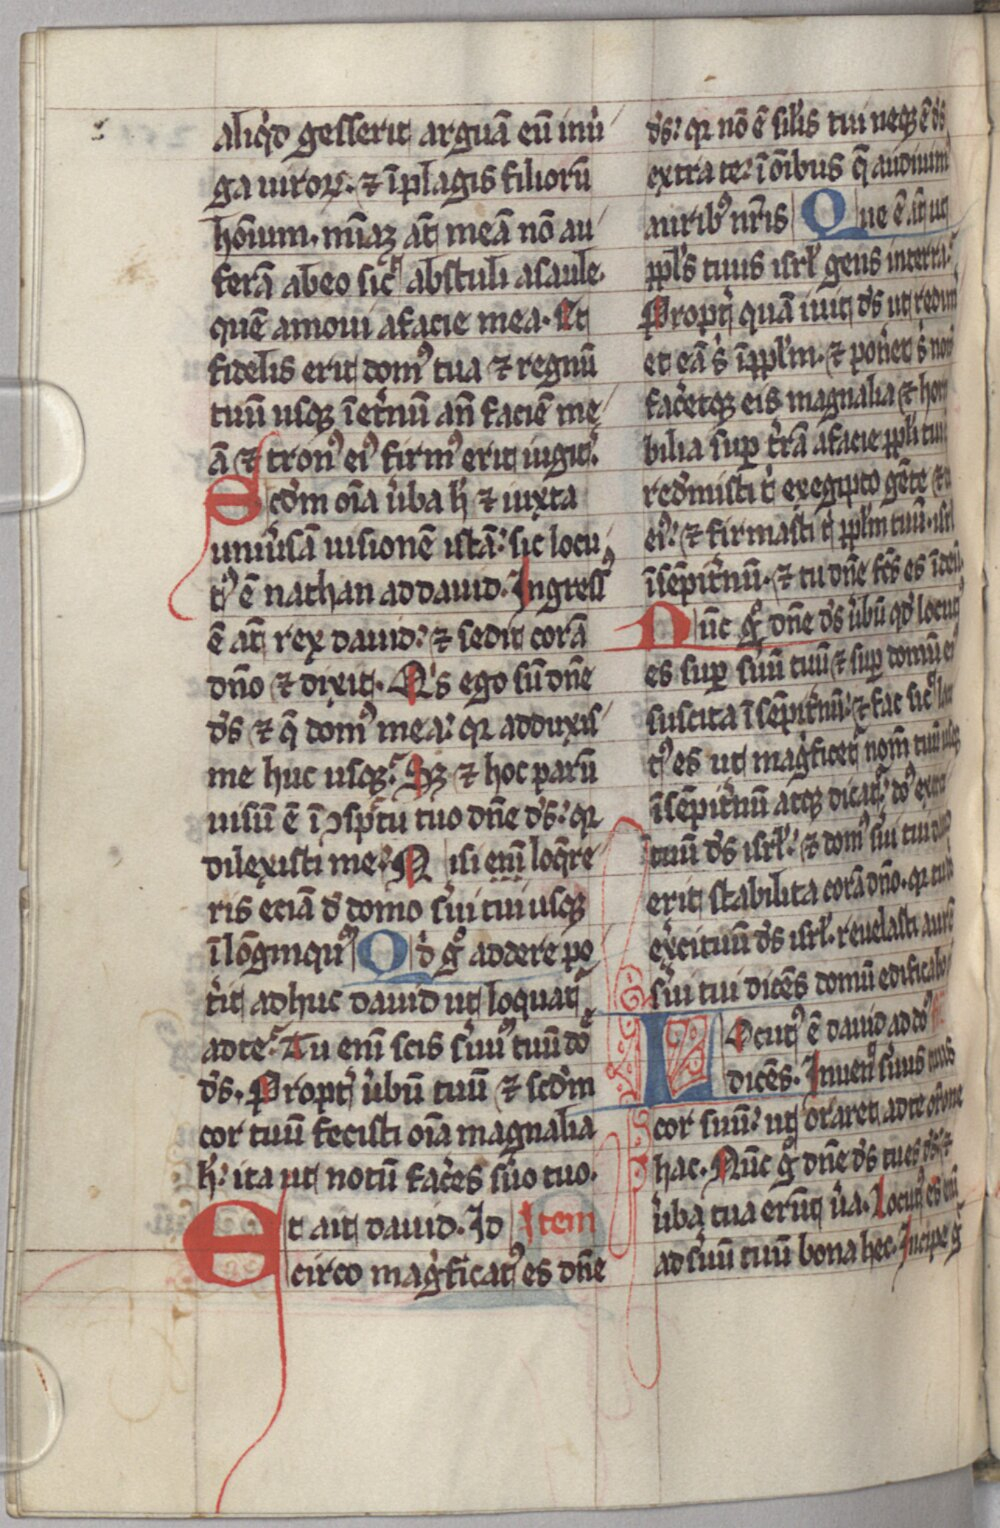 aliq̇d gesserit arguā eū inu̇i
ga uiroꝝ. ⁊ ī plagis filiorū
hōium. mīaꝫ aūt meā nō au
ferā abeo sic̄ abstuli asaule.
quē amoui afacie mea. Et
fidelis erit domꝰ tua ⁊ regnū
tuū usqꝫ ī et̄nū an̄ faciē me
ā ⁊ tronꝰ eiꝰ firmꝰ erit iugit̾.
Scd̄m oīa u̾ba h̾ ⁊ iuxta
uniu̾sā uisionē istā: sic locu
tꝰ ē nathan ad dauid. Ingressꝰ
ē aūt rex dauid: ⁊ sedit corā
dn̄o ⁊ dixit. Qͥs ego sū dn̄e
ds̄ ⁊ q̄ domꝰ mea: qꝛ adduxis
me huc usqꝫ. Sꝫ ⁊ hoc parū
uisū ē ī ꝯsp̄tu tuo dn̄e ds̄: qꝛ
dilexisti me: Nisi eni̅ loq̄re
ris etiā d̄ domo s̾ui tui usqꝫ
ī lōginquū Qͥd g̊ addere po
t̾it adhuc dauid ut loquat̾
ad te. Tu enī scis s̾uū tuū dō
ds̄. Propt̾ u̾bū tuū ⁊ scd̄m
cor tuū fecisti oīa magnalia
h̾: ita ut notū fac̾es s̾uo tuo.
Et ait dauid. Id Item
circo magͥficatꝰ es dn̄e
ds̄: qꝛ nō ē silis tui neqꝫ ē ds̄
extra te: ī oībus q̄ audiuim
auribꝰ nr̄is Que ē aūt ut
ppl̄s tuus isrl̄ gens in terra:
Propt̾ quā iuit ds̄ ut redim
et eā s̾ ī ppl̄m. ⁊ pon̾et s̾ nom̄
fac̾etqꝫ eis magnalia ⁊ horri
bilia sup t̾rā afacie ppl̄i tui
redemisti t̾ ex egipto gētē ⁊
eiꝰ: ⁊ firmasti t̾ ppl̄m tuū isrl̄
ī sēpit̾nū. ⁊ tu dn̄e fc̄s es ī deū.
Nūc g̊ dn̄e ds̄ u̾bū qd̄ locut
es sup s̾uū tuū ⁊ sup domū eiꝰ
suscita ī sēpit̾nū: ⁊ fac sic̄ locu
tꝰ es ut magͥficet̾ nom̄ tuū usqꝫ
ī sēpit̾nū atqꝫ dicat̾: dō exerci
tuū ds̄ isrl̄: ⁊ domꝰ s̾ui tui dauid
erit stabilita corā dn̄o. qꝛ tu dn̄e
ex̾cituū ds̄ isrl̄. reuelasti aurē
s̾ui tui dicēs domū edificabo
Locutꝰ ē dauid ad dō
dicēs. Inuenͥt s̾uus tuus
cor suū: ut oraret ad te or̄one
hac. Nūc g̊ dn̄e ds̄ tu es ds̄ ⁊
u̾ba tua erūt u̾a. Locutꝰ es enī
ad s̾uū tuū bona hec. Incipe g̊